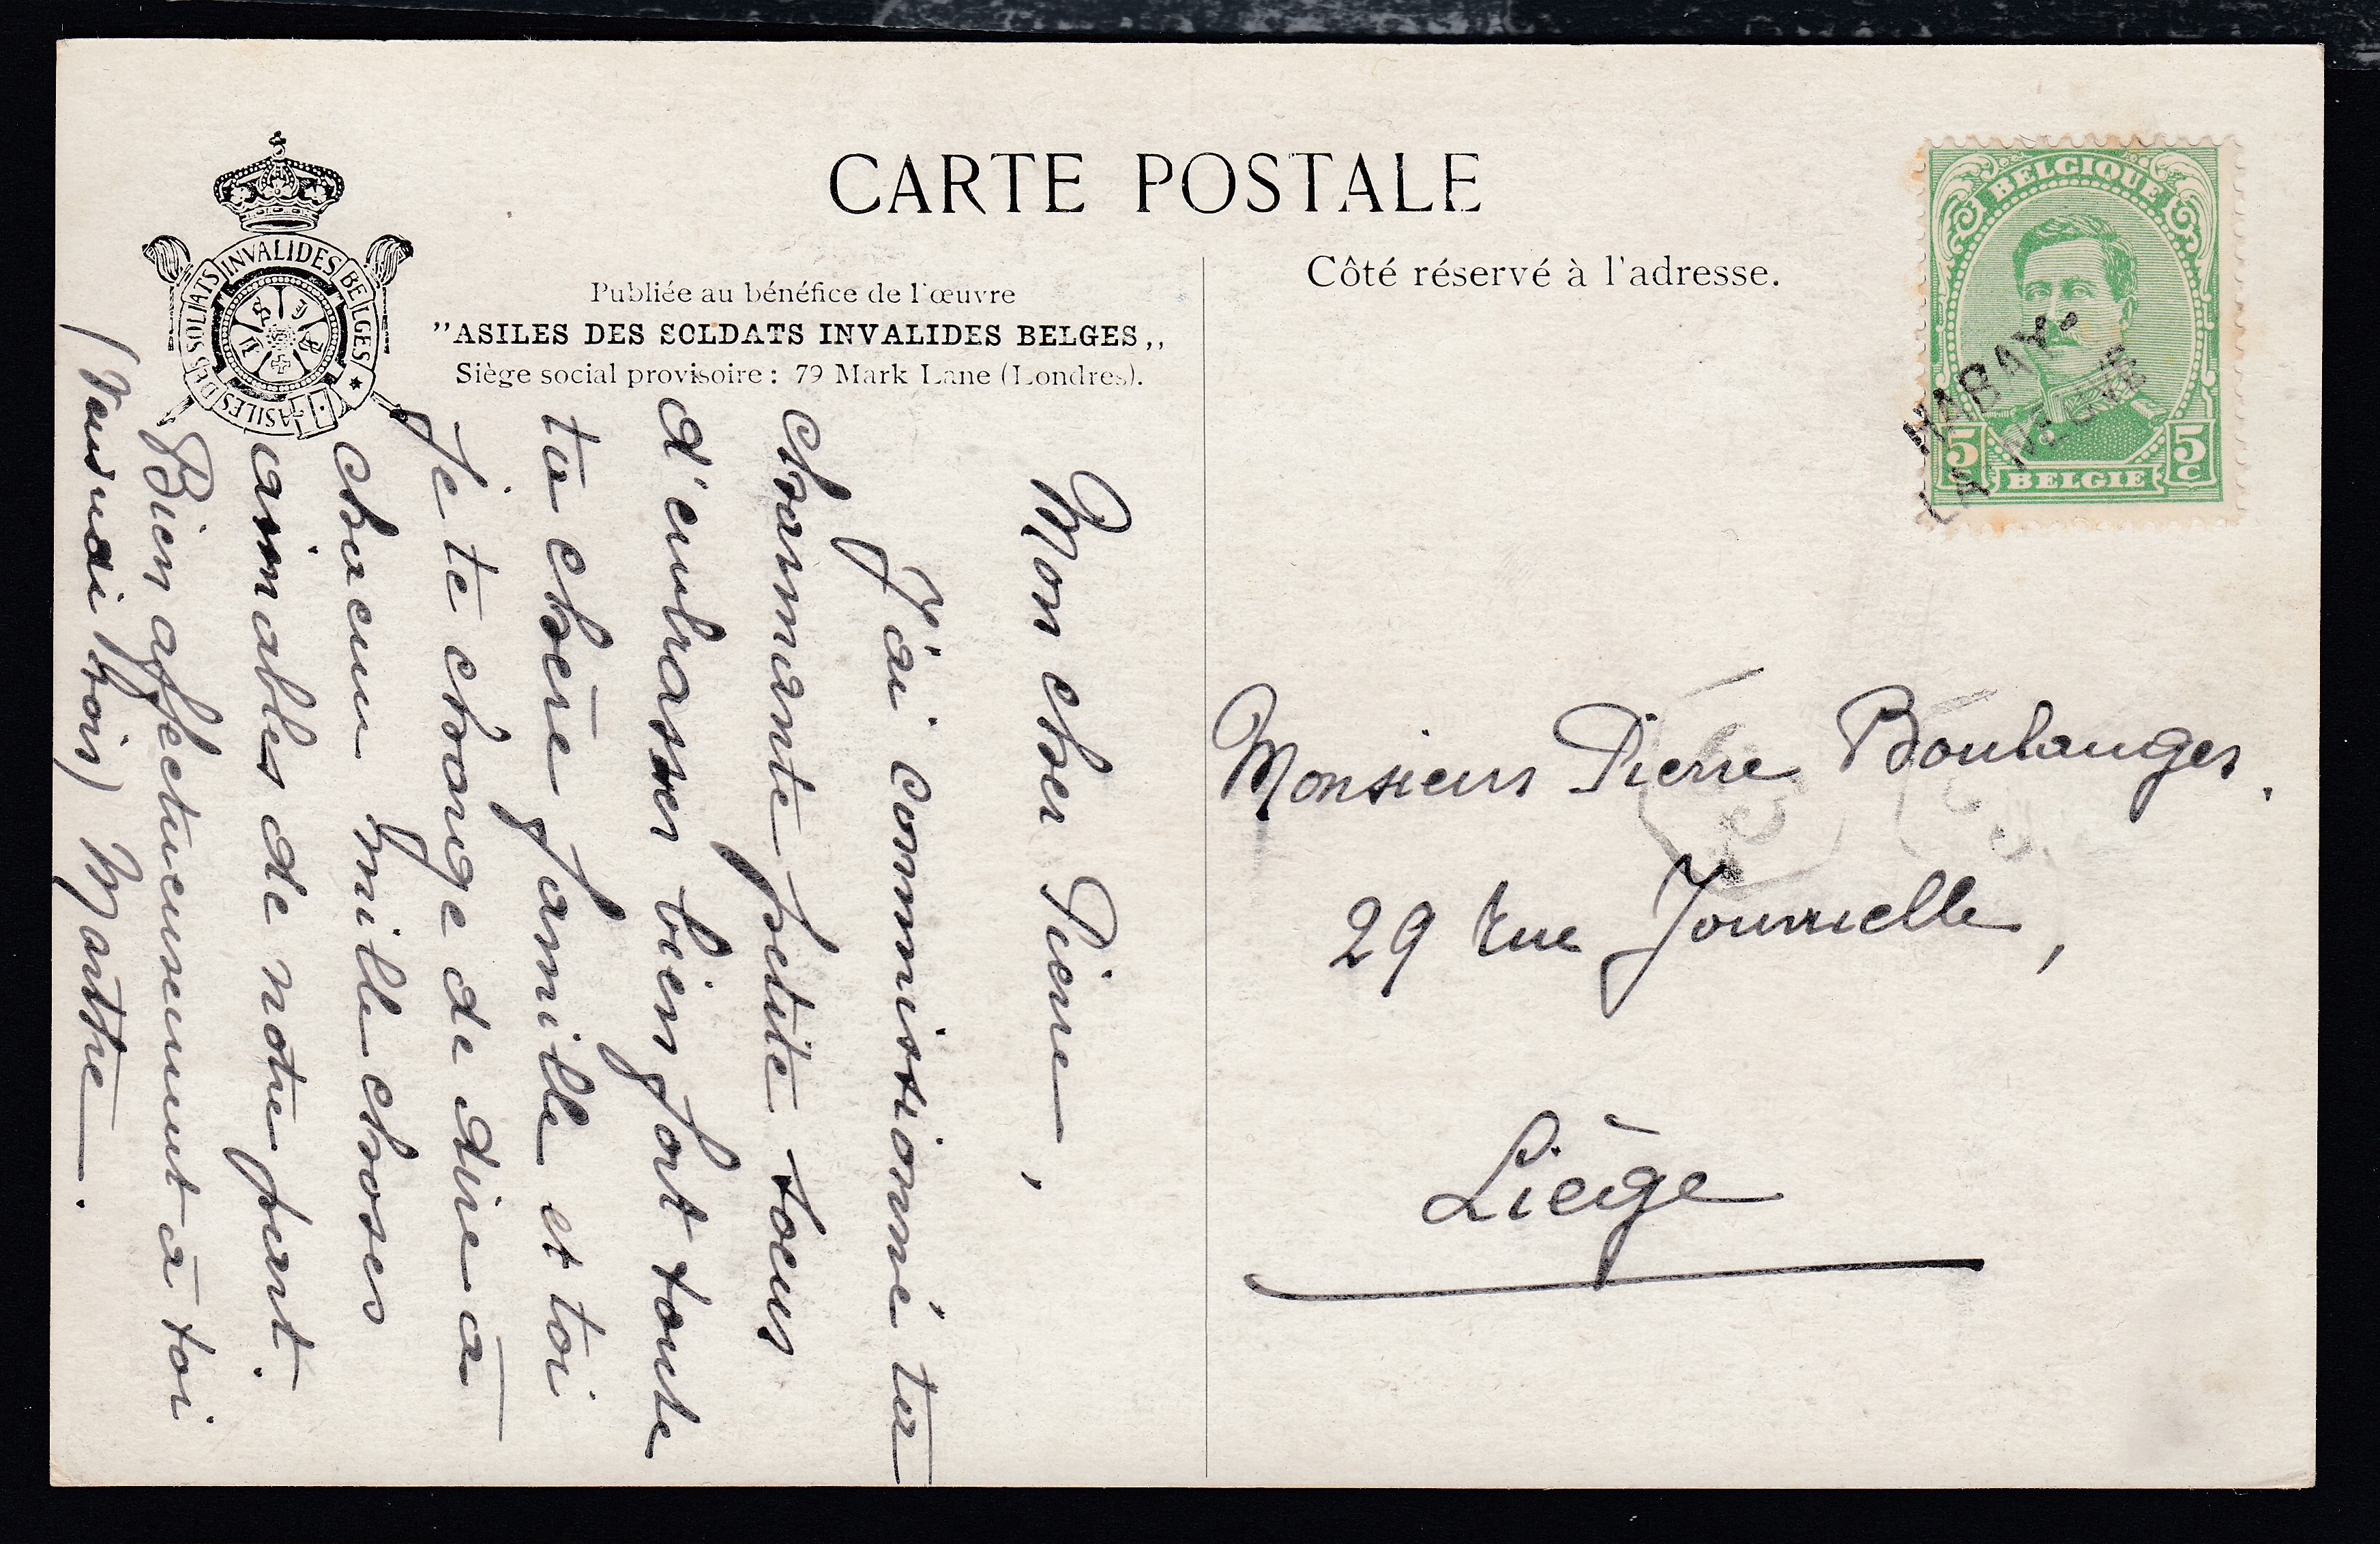 CARTE POSTALE
ASILES DES SOLDATS INVALIDES BELGES
Publiée au bénéfice de l'œuvre
"ASILES DES SOLDATS INVALIDES BELGES,,
Siège social provisoire: 79 Mark Lane (Londres).
Côté réservé à l'adresse.
BELGIQUE
5 5c
BELGIË
HABAY-
LA NEUVE
Mon cher Pierre,
J'ai commissionné ta
charmante petite soeur
d'embrasser bien fort toute
ta chère famille et toi
je te charge de dire à
chacun mille choses
aimables de notre part.
Bien affectueusement à toi
Marthe.
Monsieur Pierre Boulanger.
29 rue
Liège